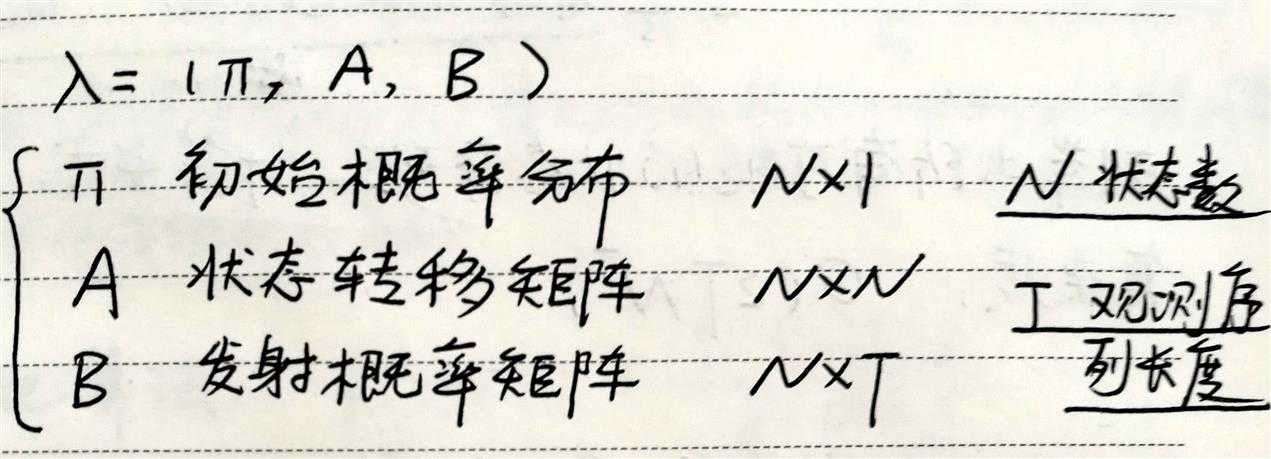 λ = (π, A, B)
π 初始概率分布 N×1 N 状态数
A 状态转移矩阵 N×N T 观测序
B 发射概率矩阵 N×T 列长度